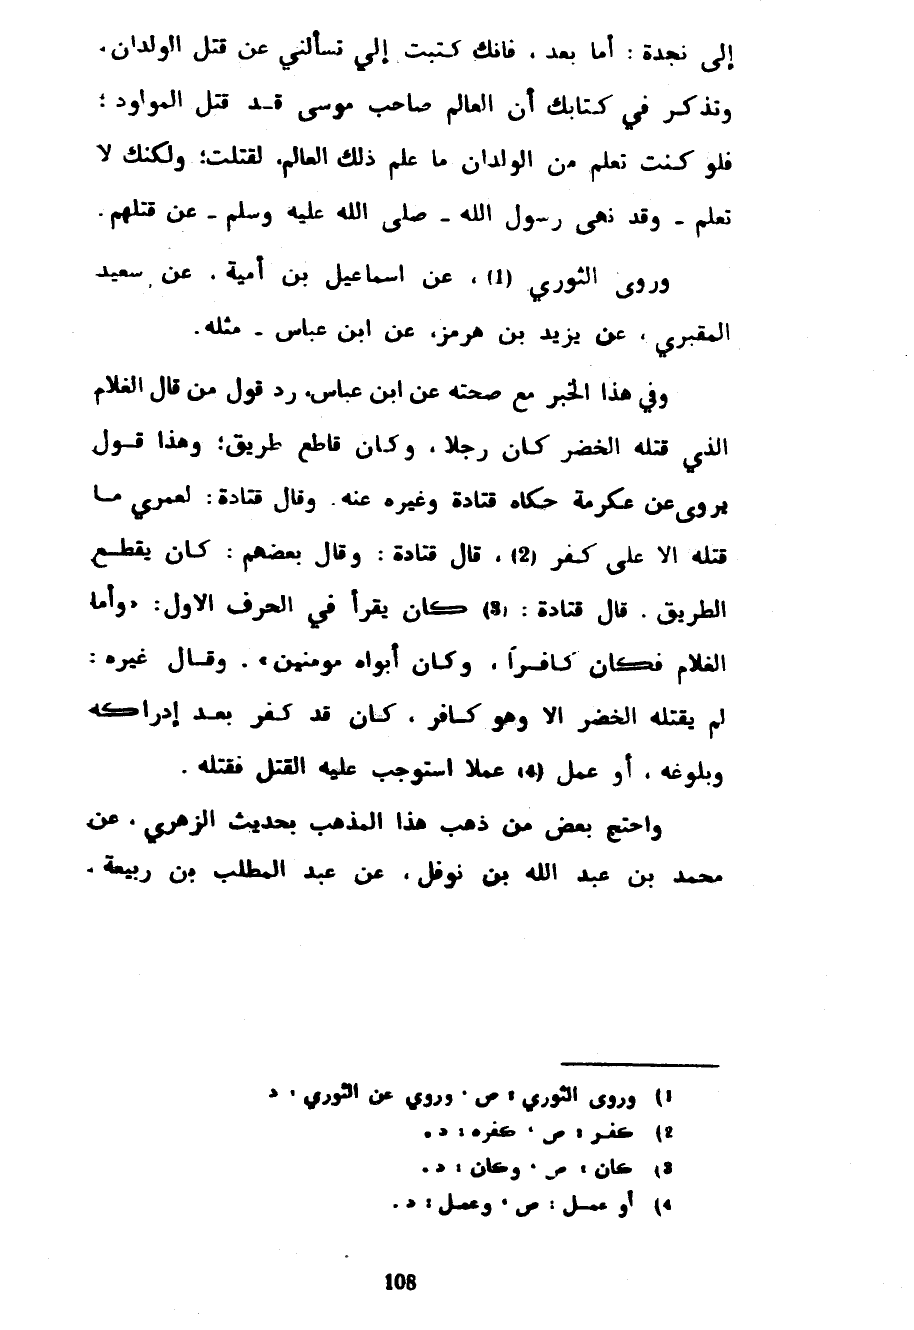 إلى نجدة : أما بعد ، فانك كتبت إلي تسألني عن قتل الولدان،
وتذكر في كتابك أن العالم صاحب موسى قد قتل المواود ؛
فلو كنت تعلم من الولدان ما علم ذلك العالم، لقتلت؛ ولكنك لا
تعلم ـ وقد نهى رسول الله ـ صلى الله عليه وسلم ـ عن قتلهم.
وروى الثوري (1) ، عن اسماعيل بن أمية ، عن سعيد
المقبري ، عن يزيد بن هرمز، عن ابن عباس ـ مثله.
وفي هذا الخبر مع صحته عن ابن عباس، رد قول من قال الغلام
الذي قتله الخضر كان رجلا ، وكان قاطع طريق؛ وهذا قول
يروى عن عكرمة حكاه قتادة وغيره عنه. وقال قتادة : لعمري ما
قتله الا على كفر (2) ، قال قتادة : وقال بعضهم : كان يقطع
الطريق . قال قتادة : (3) كان يقرأ في الحرف الاول: «وأما
الغلام فكان كافراً ، وكان أبواه مومنين» . وقال غيره :
لم يقتله الخضر الا وهو كافر ، كان قد كفر بعد إدراكه
وبلوغه ، أو عمل (4) عملا استوجب عليه القتل فقتله .
واحتج بعض من ذهب هذا المذهب بحديث الزهري ، عن
محمد بن عبد الله بن نوفل، عن عبد المطلب بن ربيعة ،
1) وروى الثوري : ص ، وروي عن الثوري : د
2) كفر : ص ، كفره : د .
3) كان : ص ، وكان : د .
4) أو عمل : ص ، وعمل : د .
108